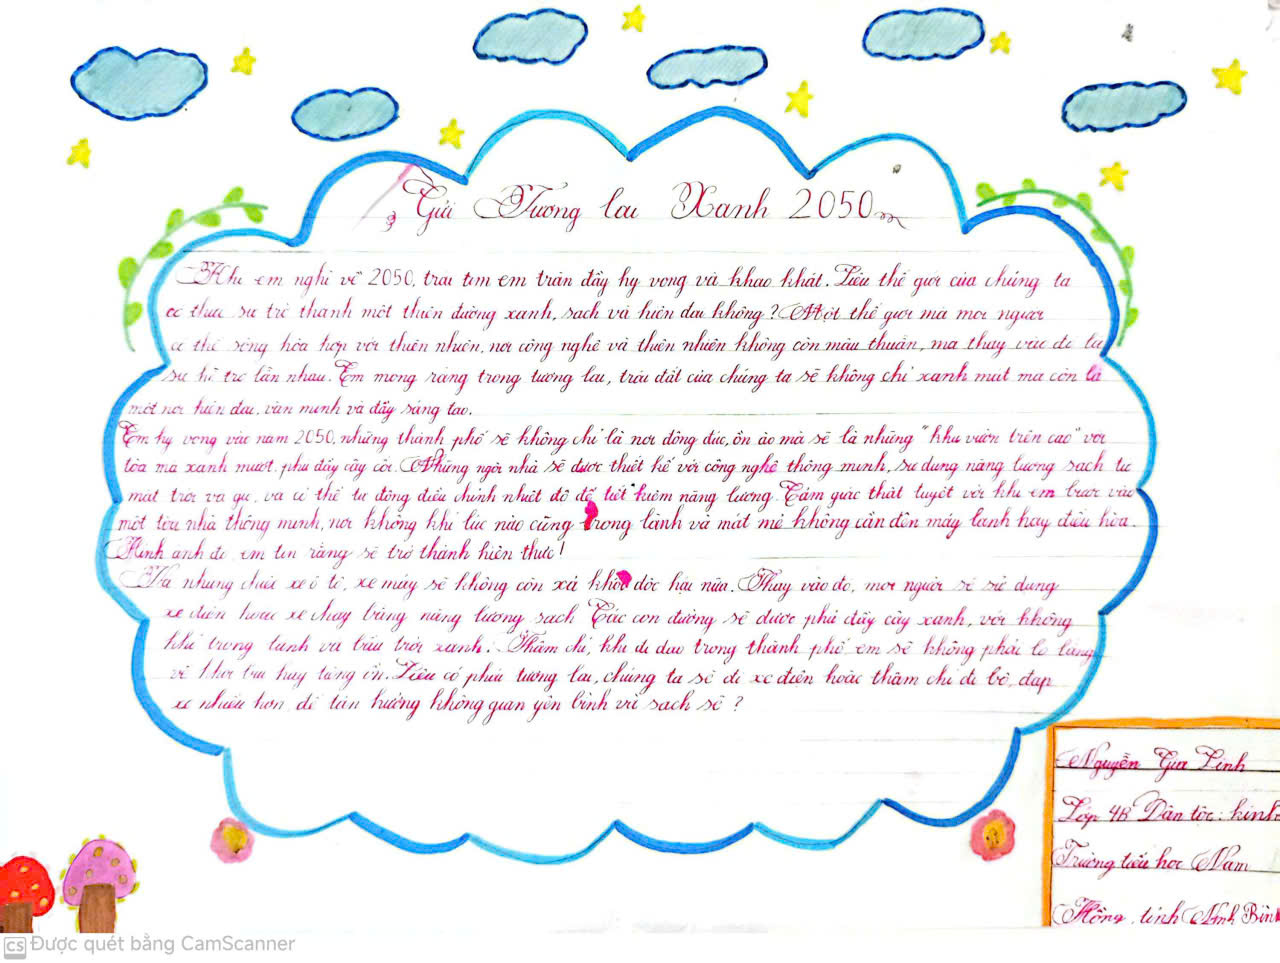 Gửi Tương lai Xanh 2050
Khi em nghĩ về 2050, trái tim em tràn đầy hy vọng và khao khát. Liệu thế giới của chúng ta
có thực sự trở thành một thiên đường xanh, sạch và hiện đại không? Một thế giới mà mọi người
có thể sống hòa hợp với thiên nhiên, nơi công nghệ và thiên nhiên không còn mâu thuẫn, mà thay vào đó là
sự hỗ trợ lẫn nhau. Em mong rằng trong tương lai, trái đất của chúng ta sẽ không chỉ xanh mát mà còn là
một nơi hiện đại, văn minh và đầy sáng tạo.
Em hy vọng vào năm 2050, những thành phố sẽ không chỉ là nơi đông đúc, ồn ào mà sẽ là những "khu vườn trên cao" với
tòa mà xanh mướt, phủ đầy cây cối. Những ngôi nhà sẽ được thiết kế với công nghệ thông minh, sử dụng năng lượng sạch từ
mặt trời và gió, và có thể tự động điều chỉnh nhiệt độ để tiết kiệm năng lượng. Cảm giác thật tuyệt vời khi em bước vào
một tòa nhà thông minh, nơi không khí lúc nào cũng trong lành và mát mẻ không cần đến máy lạnh hay điều hòa.
Hình ảnh đó, em tin rằng sẽ trở thành hiện thực!
Và những chiếc xe ô tô, xe máy sẽ không còn xả khói độc hại nữa. Thay vào đó, mọi người sẽ sử dụng
xe điện hoặc xe chạy bằng năng lượng sạch. Các con đường sẽ được phủ đầy cây xanh, với không
khí trong lành và bầu trời xanh. Thậm chí, khi đi dạo trong thành phố, em sẽ không phải lo lắng
về khói bụi hay tiếng ồn. Liệu có phải tương lai, chúng ta sẽ đi xe điện hoặc thậm chí đi bộ, đạp
xe nhiều hơn để tận hưởng không gian yên bình và sạch sẽ?
Nguyễn Gia Linh
Lớp 4B Dân tộc: kinh
Trường tiểu học Nam
Hồng, tỉnh Ninh Bình
CS Được quét bằng CamScanner